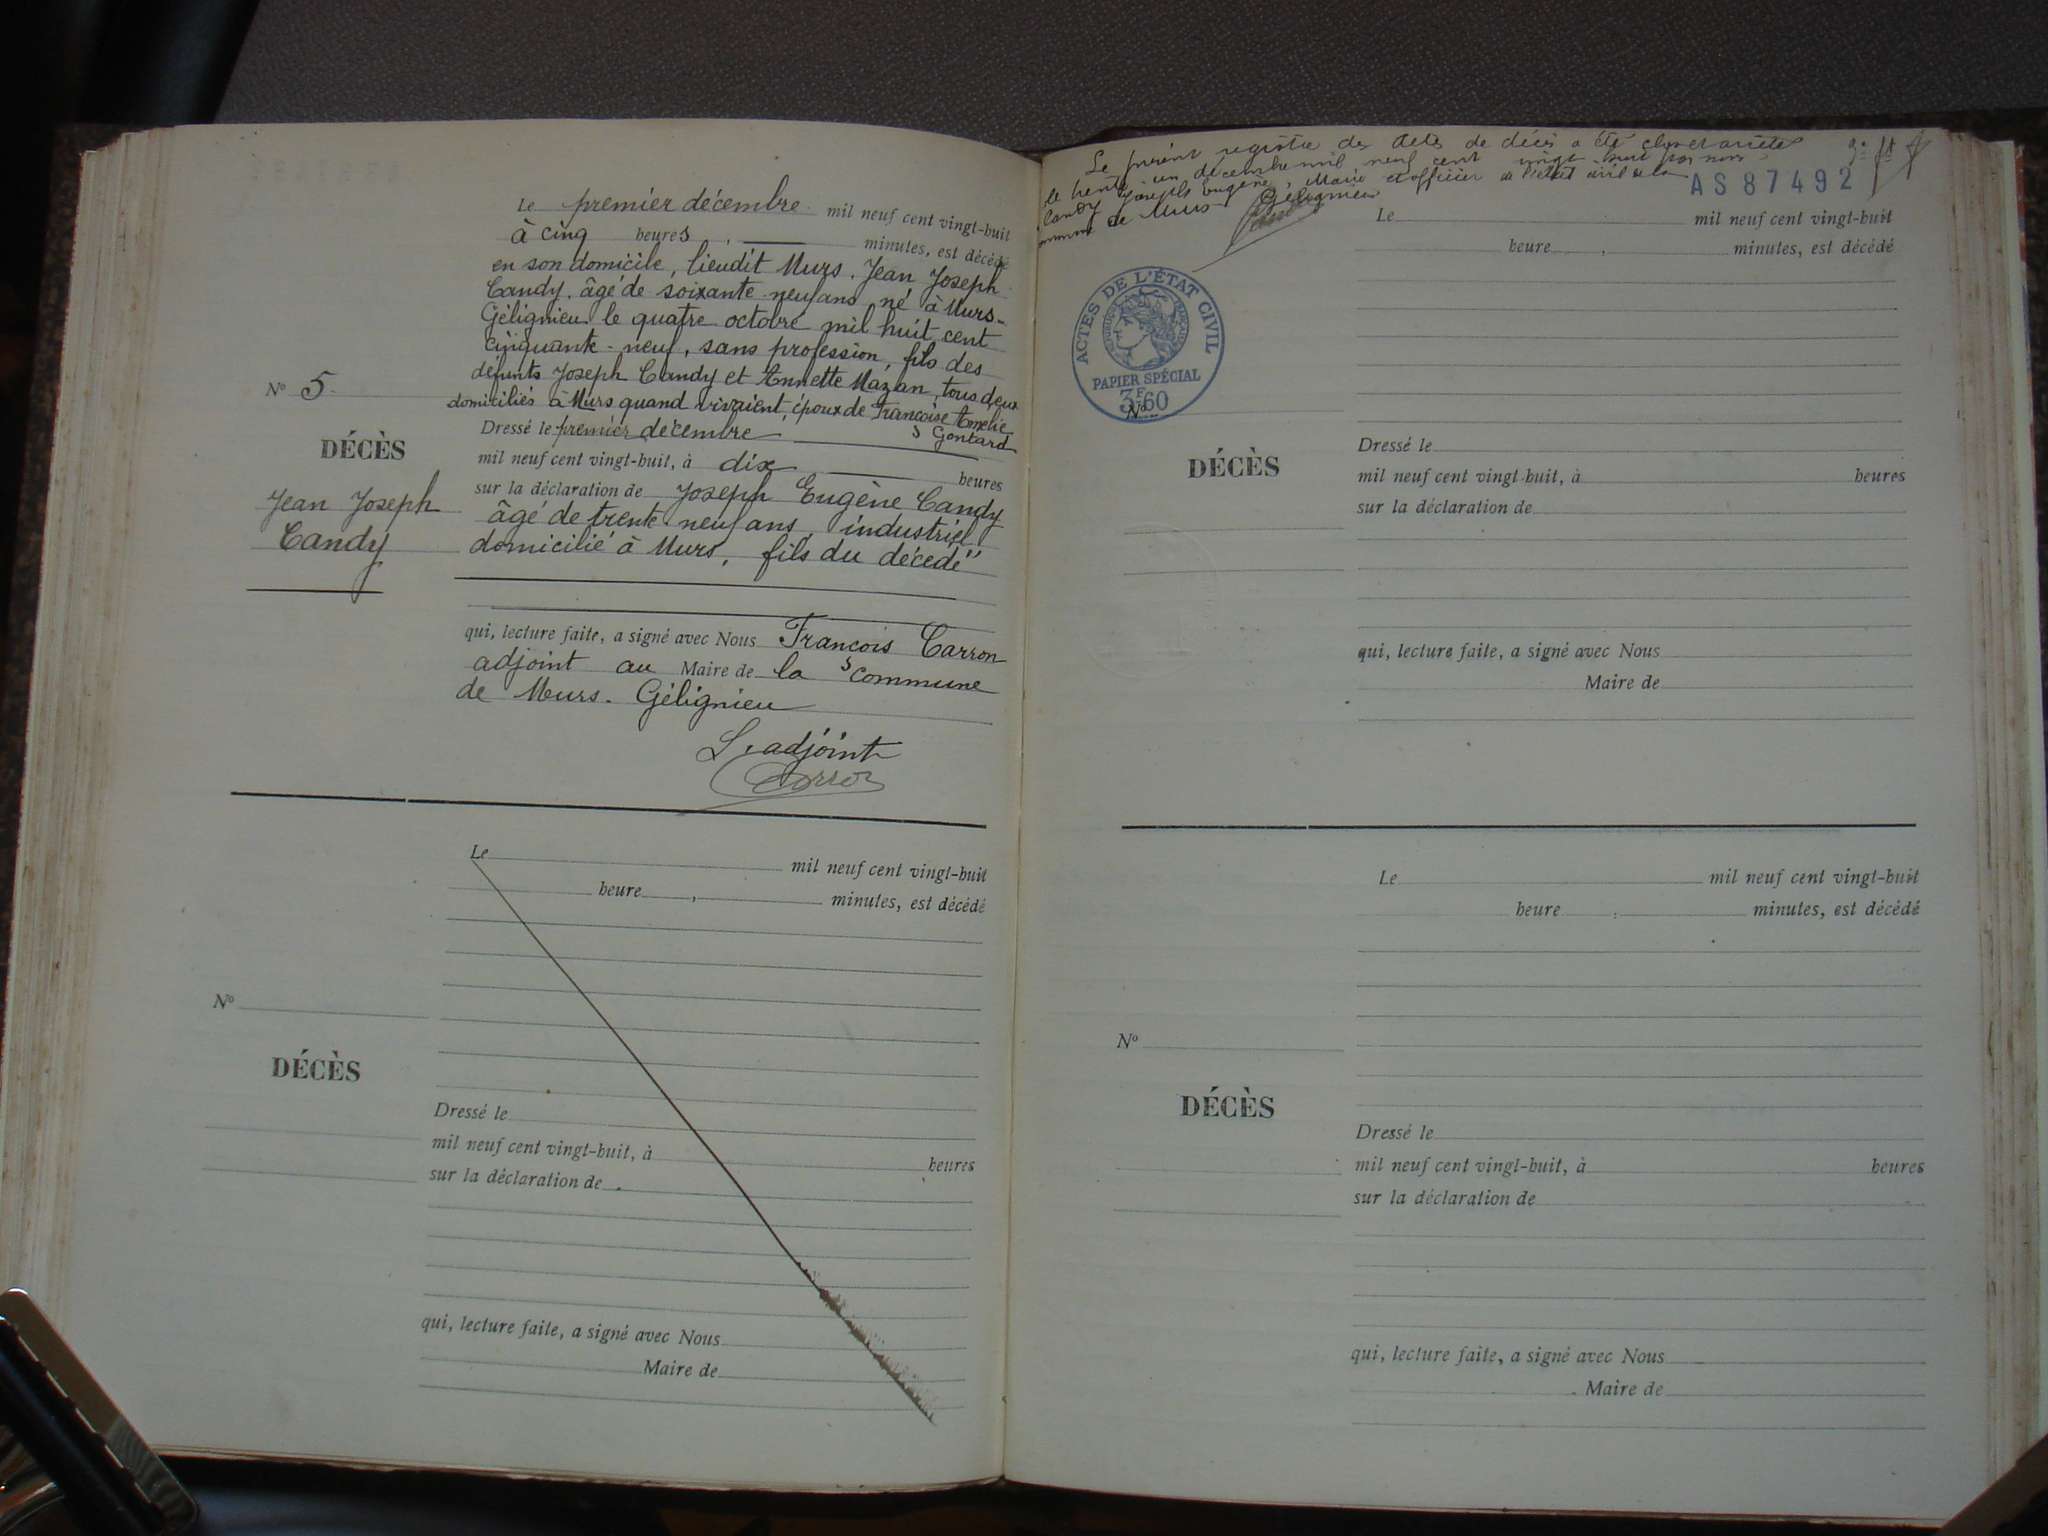 Le premier décembre mil neuf cent vingt-huit
à cinq heures, minutes, est décédé
en son domicile, lieudit Murs, Jean Joseph
Candy, âgé de soixante neuf ans né à Murs-
Gélignieu le quatre octobre mil huit cent
cinquante-neuf, sans profession, fils des
défunts Joseph Candy et Annette Mazan, tous deux
domiciliés à Murs quand vivaient, époux de Francoise Amélie
Gontard
Nº 5
DÉCÈS
Jean Joseph
Candy
Dressé le premier décembre
mil neuf cent vingt-huit, à dix heures
sur la déclaration de Joseph Eugène Candy
âgé de trente neuf ans, industriel
domicilié à Murs, fils du décédé
qui, lecture faite, a signé avec Nous Francois Carron
adjoint au Maire de la commune
de Murs-Gélignieu
L'adjoint
Carron
Le mil neuf cent vingt-huit
heure , minutes, est décédé
Nº
DÉCÈS
Dressé le
mil neuf cent vingt-huit, à heures
sur la déclaration de
qui, lecture faite, a signé avec Nous
Maire de
Le présent registre des actes de décès a été clos et arrêté
le trente un décembre mil neuf cent vingt huit par nous
Candy Joseph Eugène, Maire et officier de l'état civil de la
commune de Murs Gélignieu
Candy
AS 87492
ACTES DE L'ÉTAT CIVIL
RÉPUBLIQUE FRANÇAISE
PAPIER SPÉCIAL
3F60
Le mil neuf cent vingt-huit
heure , minutes, est décédé
Nº
DÉCÈS
Dressé le
mil neuf cent vingt-huit, à heures
sur la déclaration de
qui, lecture faite, a signé avec Nous
Maire de
Le mil neuf cent vingt-huit
heure , minutes, est décédé
Nº
DÉCÈS
Dressé le
mil neuf cent vingt-huit, à heures
sur la déclaration de
qui, lecture faite, a signé avec Nous
Maire de